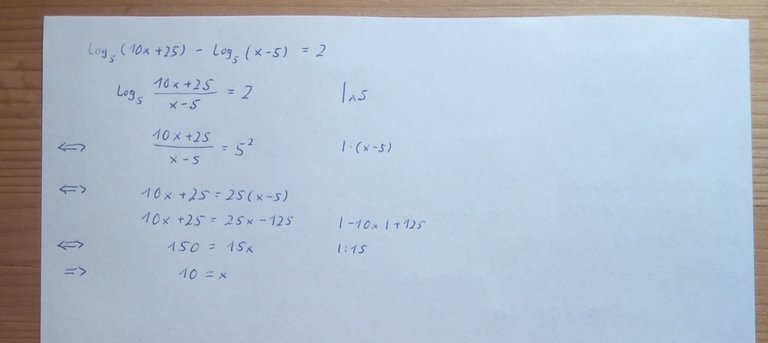 log₅ (10x+25) - log₅ (x-5) = 2
log₅ (10x+25)/(x-5) = 2 |^5
⇔ (10x+25)/(x-5) = 5² |·(x-5)
⇔ 10x+25 = 25(x-5)
10x+25 = 25x-125 |-10x |+125
⇔ 150 = 15x |:15
⇒ 10 = x